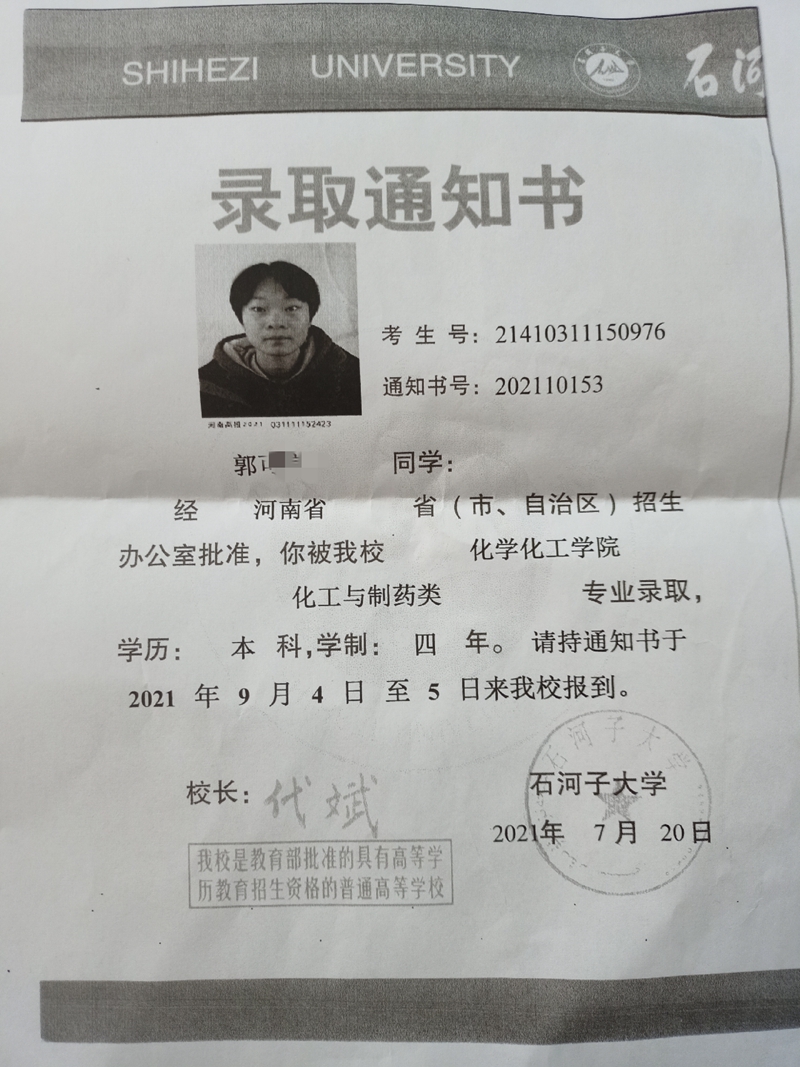 SHIHEZI UNIVERSITY 石河
录取通知书
考生号：21410311150976
通知书号：202110153
河南高招2021 031111152423
郭 同学：
经 河南省 省（市、自治区）招生
办公室批准，你被我校 化学化工学院
化工与制药类 专业录取，
学历： 本 科，学制： 四 年。 请持通知书于
2021 年 9 月 4 日 至 5 日来我校报到。
校长：代斌
石河子大学
石河子大学
2021年 7月 20日
我校是教育部批准的具有高等学
历教育招生资格的普通高等学校